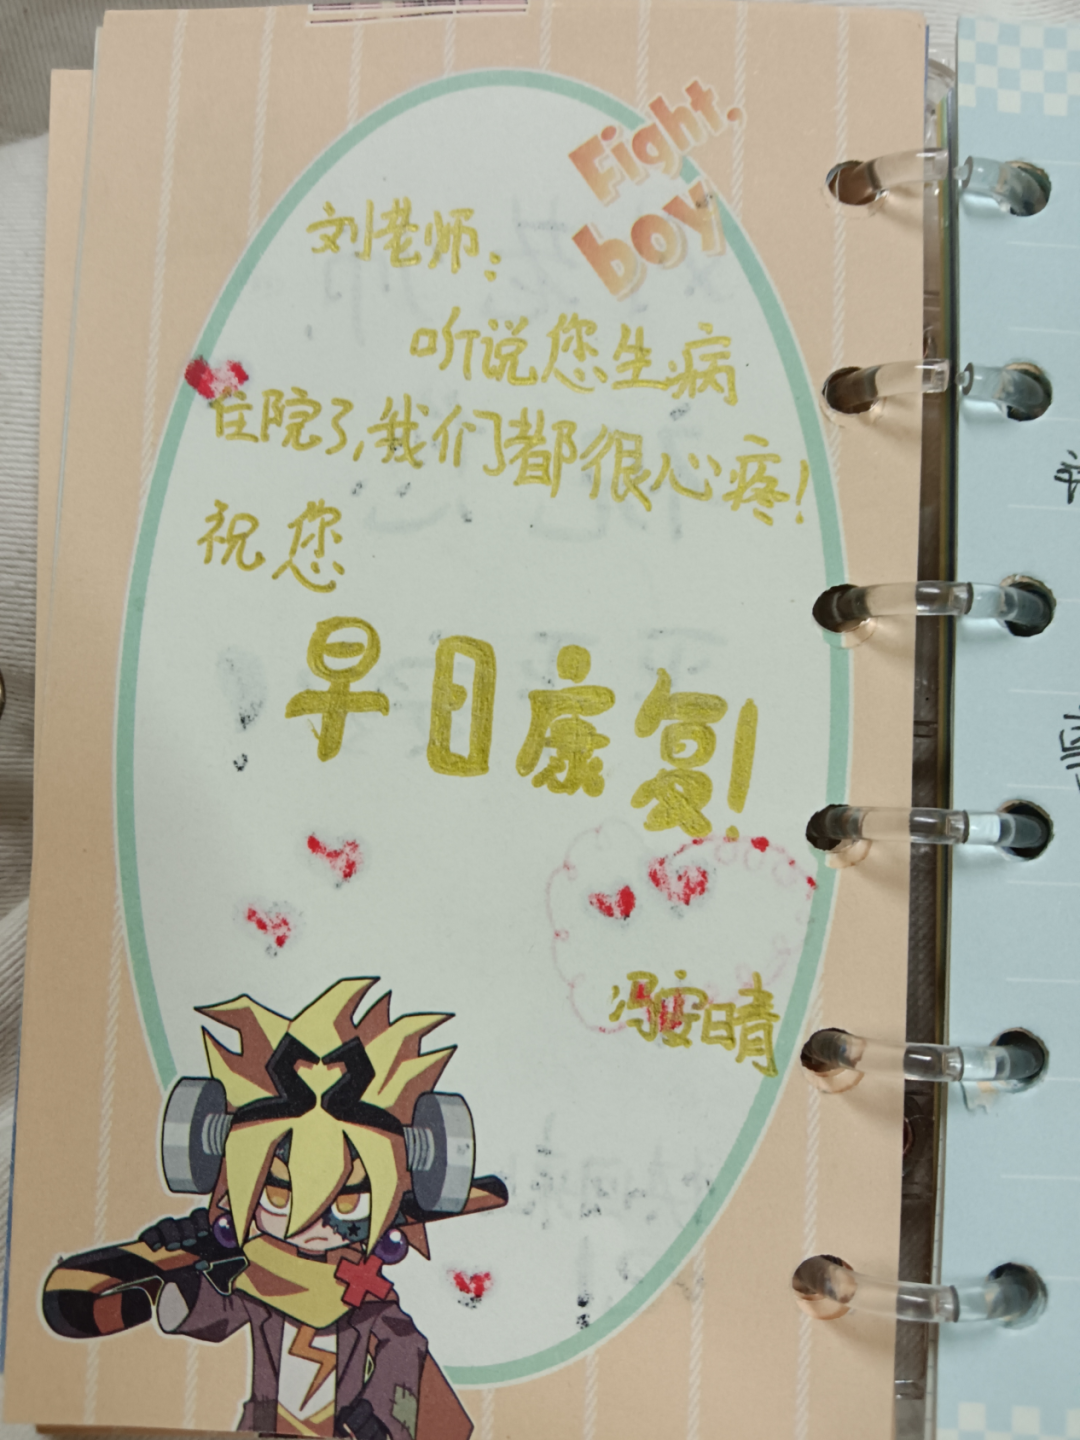 Fight,
boy
刘老师：
听说您生病
住院了,我们都很心疼!
祝您
早日康复!
冯安晴